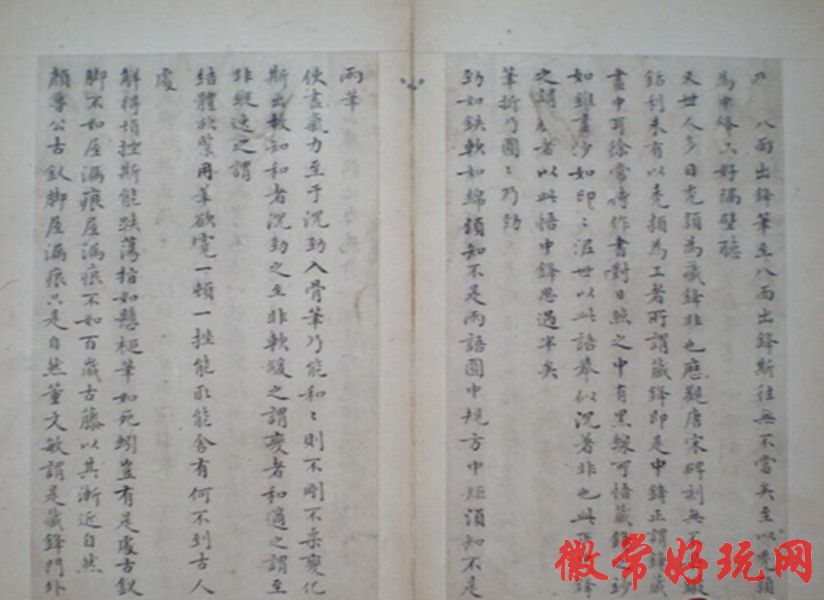 八面出鋒筆至八面出鋒斯往無不當矣至以禿穎
為中鋒只好隔壁聽
又世人多目禿穎為藏鋒非也歷觀唐宋碑刻無不
銛利未有以禿穎為工者所謂藏鋒即是中鋒正謂鋒藏
畫中耳徐常侍作書對日照之中有黑線可悟藏鋒之妙
如錐畫沙如印〻泥世以此語舉似沉著非也此正中鋒
之謂者以此悟中鋒思過半矣
筆折乃圓〻乃勁
勁如鐵軟如綿須知不是兩語圓中規方中矩須知不是
兩筆
使盡氣力至于沉勁入骨筆乃能和〻則不剛不柔變化
斯出故知和者沉勁之至非軟緩之謂變者和適之謂至
非縱逸之謂
結體欲緊用筆欲寬一頓一挫能取能舍有何不到古人
處
解得頓挫斯能跌蕩指如懸槌筆如死蚓豈有是處古釵
腳不如屋漏痕屋漏痕不如百歲古藤以其漸近自然
顏魯公古釵腳屋漏痕只是自然董文敏謂是藏鋒門外
徽常好玩网